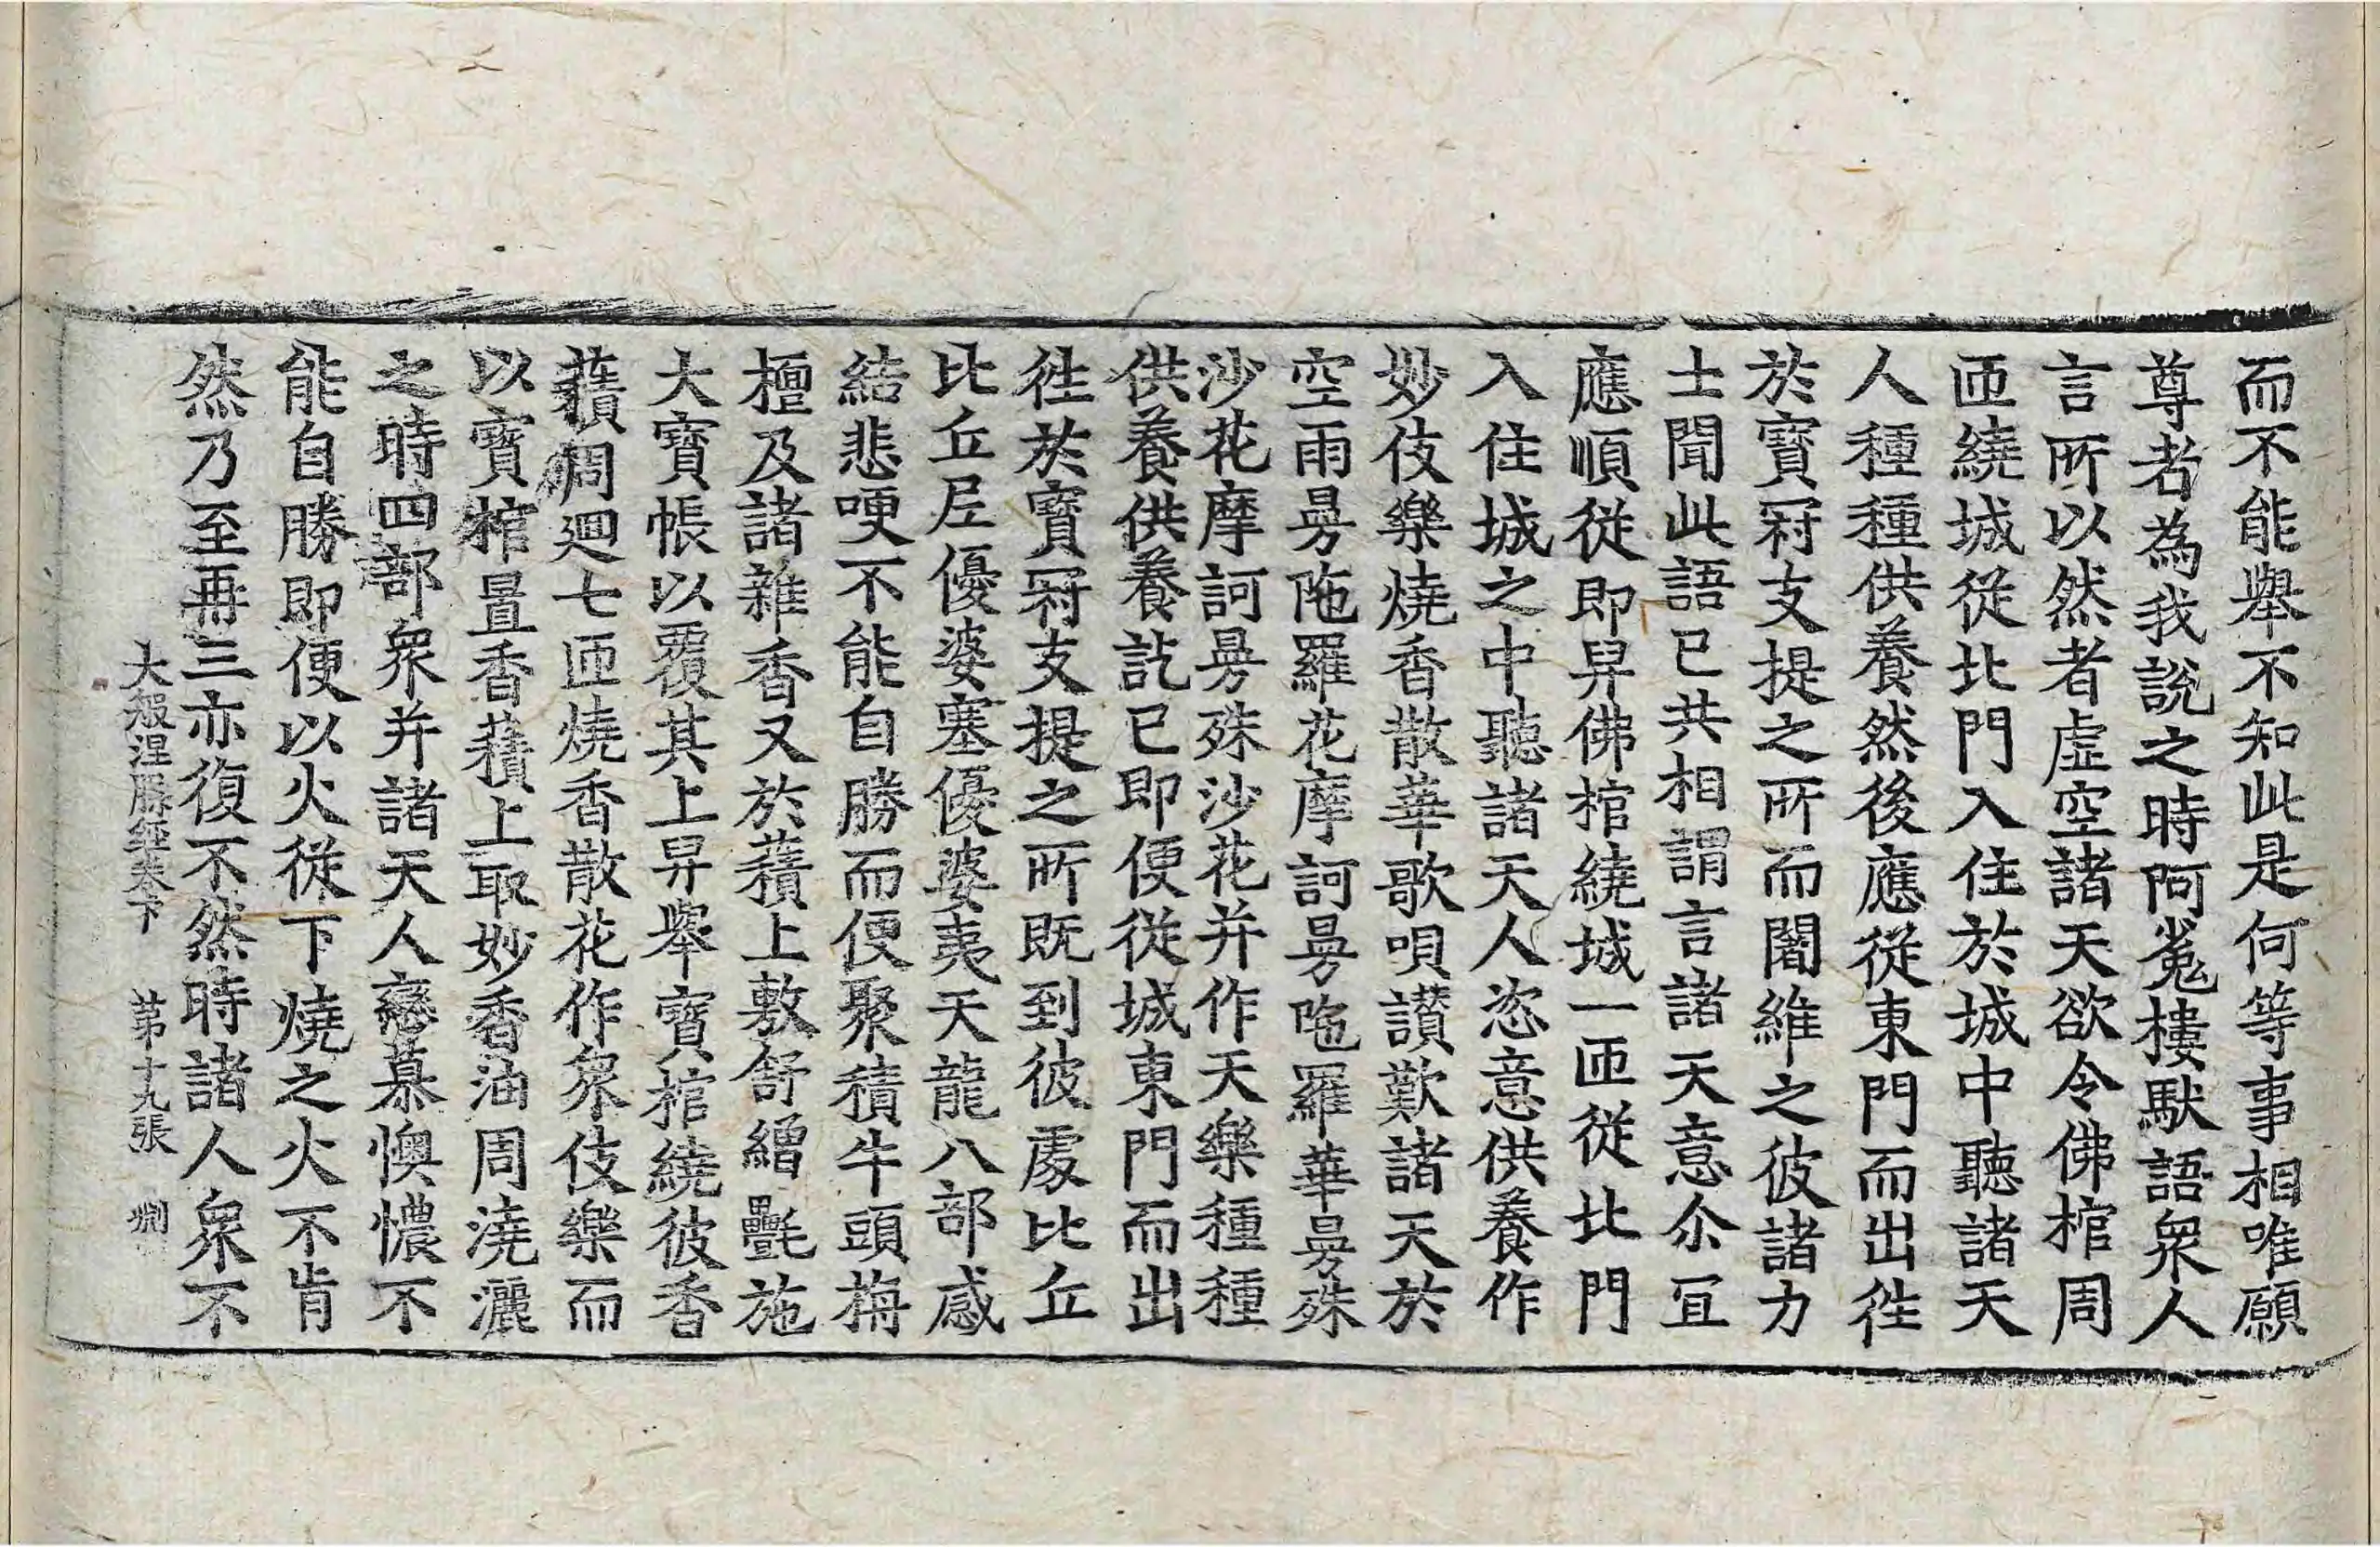 而不能舉不知此是何等事相唯願
尊者為我說之時阿㝹樓馱語衆人
言所以然者虛空諸天欲令佛棺周
匝繞城從北門入住於城中聽諸天
人種種供養然後應從東門而出往
於寶冠支提之所而闍維之彼諸力
士聞此語已共相謂言諸天意尒宜
應順從即舁佛棺繞城一匝從北門
入住城之中聽諸天人恣意供養作
妙伎樂燒香散華歌唄讃歎諸天於
空雨曼陁羅花摩訶曼陁羅華曼殊
沙花摩訶曼殊沙花并作天樂種種
供養供養訖已即便從城東門而出
往於寶冠支提之所既到彼處比丘
比丘尼優婆塞優婆夷天龍八部感
結悲哽不能自勝而便聚積牛頭栴
檀及諸雜香又於𧂐上敷舒繒㲲施
大寶帳以覆其上舁舉寶棺繞彼香
𧂐周迴七匝燒香散花作衆伎樂而
以寶棺置香𧂐上取妙香油周澆灑
之時四部衆并諸天人戀慕懊憹不
能自勝即便以火從下燒之火不肯
然乃至再三亦復不然時諸人衆不
大般涅槃經卷下 第十九張 㓨